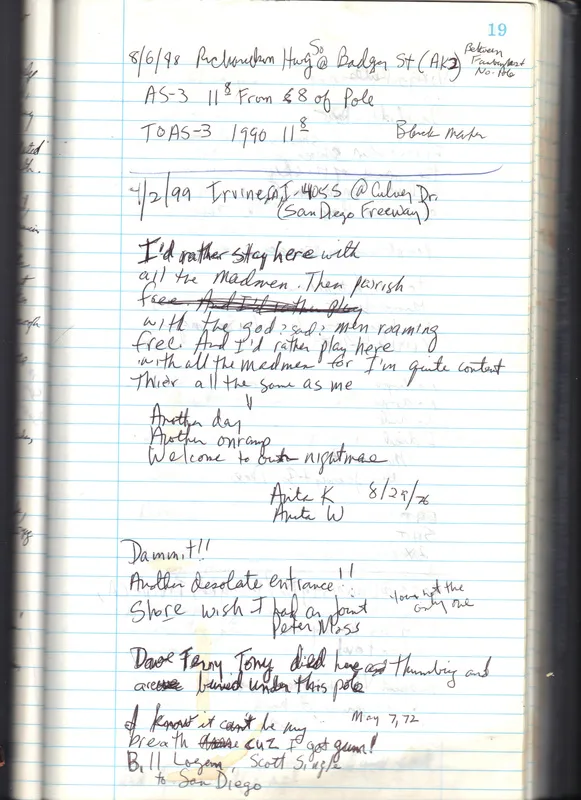 19
8/6/98 Richardson Hwy So @ Badger St (AK2) Between Fairbanks & No. Pole
AS-3 11⁸ From 8 of Pole
TOAS-3 1990 11⁸ Black marker
4/2/99 Irvine CA I-405S @ Culver Dr.
(San Diego Freeway)
I'd rather stay here with
all the madmen. Then pairish
with the god? sad? men roaming
free. And I'd rather play here
with all the madmen for I'm quite content
Thier all the same as me
Another day
Another onramp
Welcome to nightmae
Anita K 8/29/76
Anita W
Dammit!!
Another desolate entrance!!
Shore wish I had an joint your not the only one
Peter Moss
Dave Terry Tony died here thumbing and
are buried under this pole
I know it can't be my May 7, 72
breath cuz I got gum!
Bill Scott Single
to San Diego